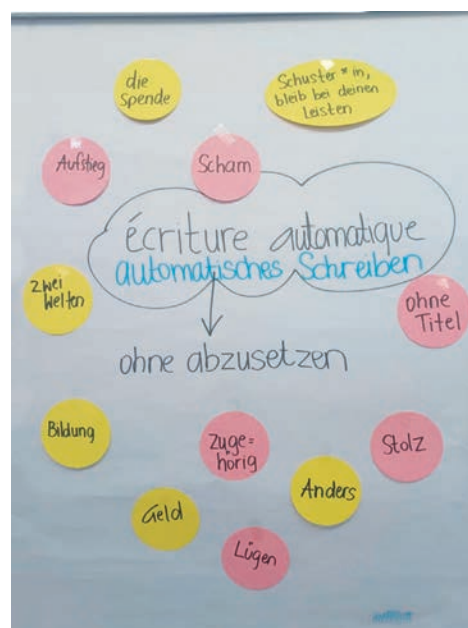 die
Spende
Schuster*in,
bleib bei deinen
Leisten
Aufstieg
Scham
écriture automatique
automatisches Schreiben
zwei
Welten
ohne
Titel
ohne abzusetzen
Bildung
Zuge=
hörig
Stolz
Anders
Geld
Lügen